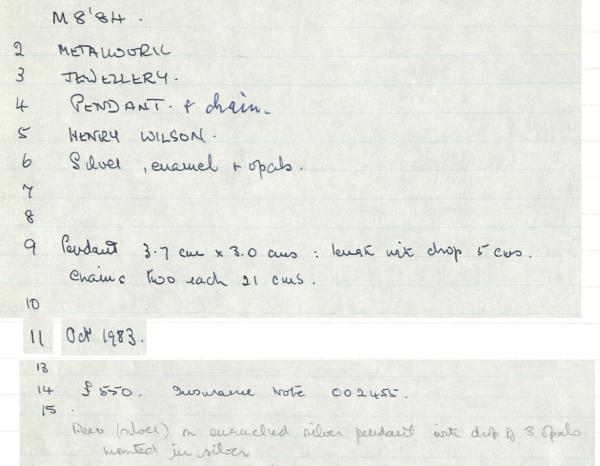 M8'84.
2 METALWORK
3 JEWELLERY.
4 PENDANT. + chain.
5 HENRY WILSON.
6 Silver, enamel + opals.
7
8
9 Pendant 3.7 cm x 3.0 cms : length with drop 5 cms.
Chains two each 21 cms.
10
11 Oct 1983.
13
14 £550. Insurance Note 002455.
15.
Deer (silver) on enamelled silver pendant with drop of 3 opals
mounted in silver